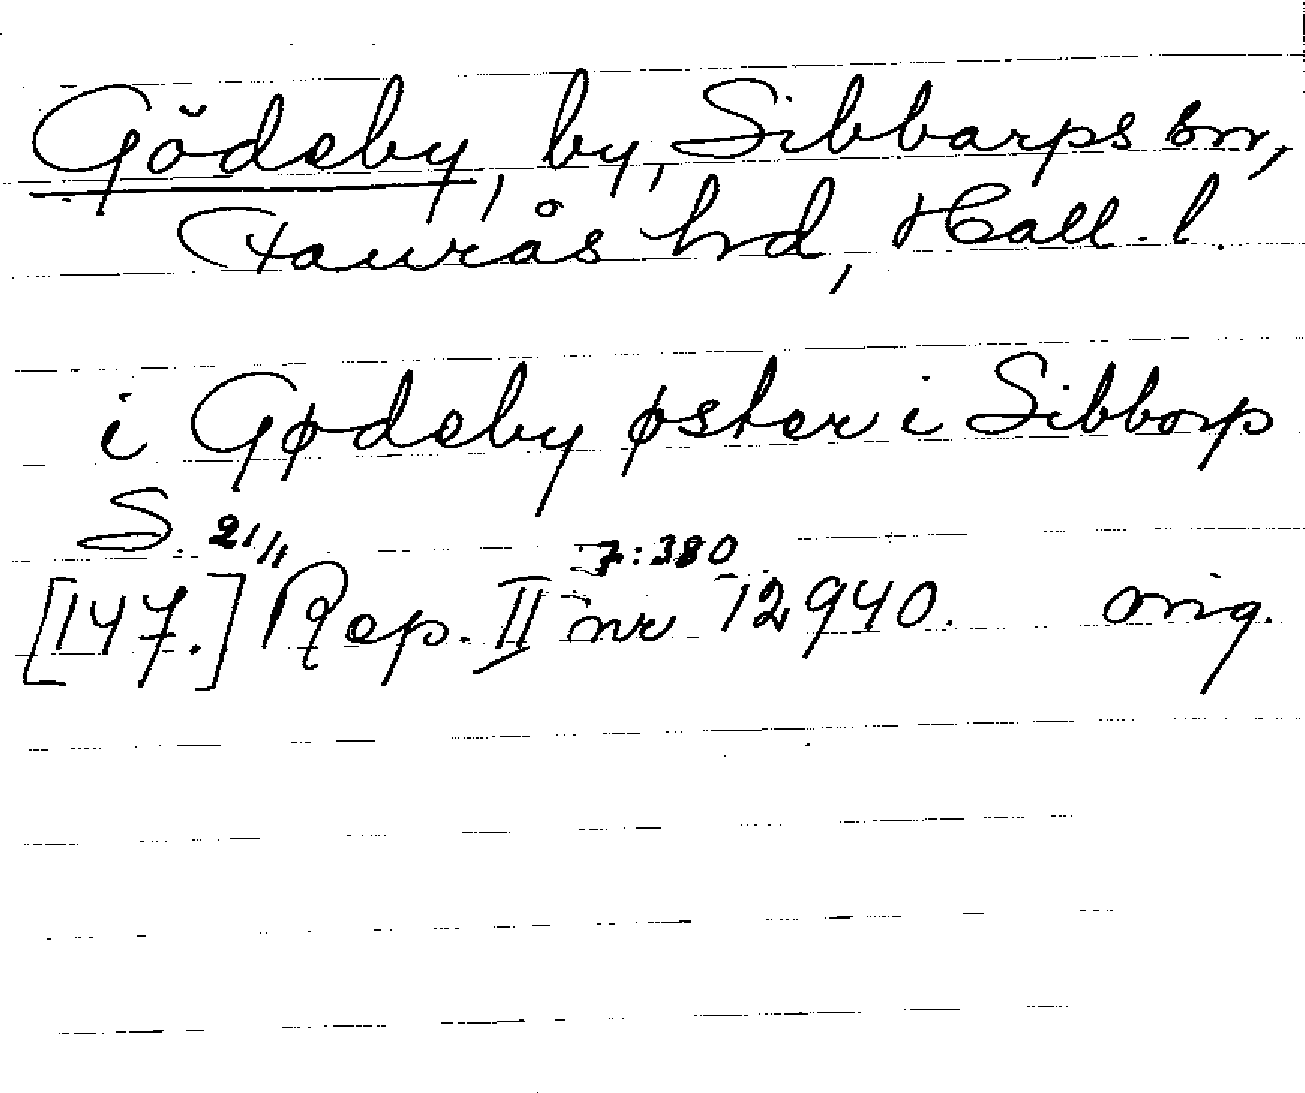 Gödeby, by, Sibbarps sn,
Faurås hd, Hall. l.
i Gødeby øster i Sibborp
S. 21/11
7:380
[147.] Rep. II nr 12940. orig.